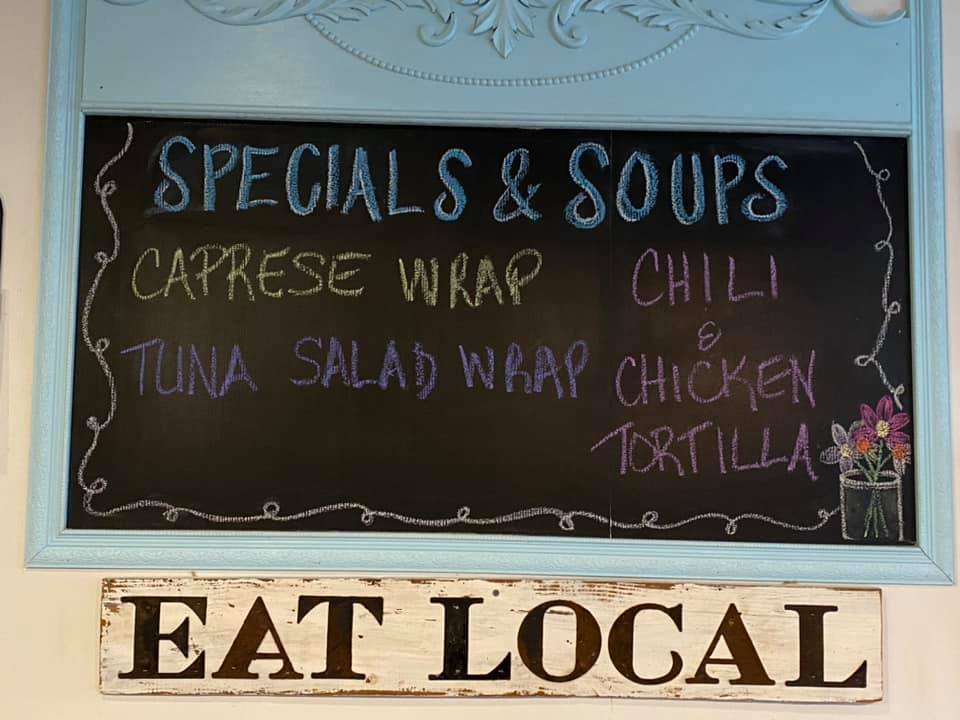 SPECIALS & SOUPS
CAPRESE WRAP
TUNA SALAD WRAP
CHILI
&
CHICKEN
TORTILLA
EAT LOCAL